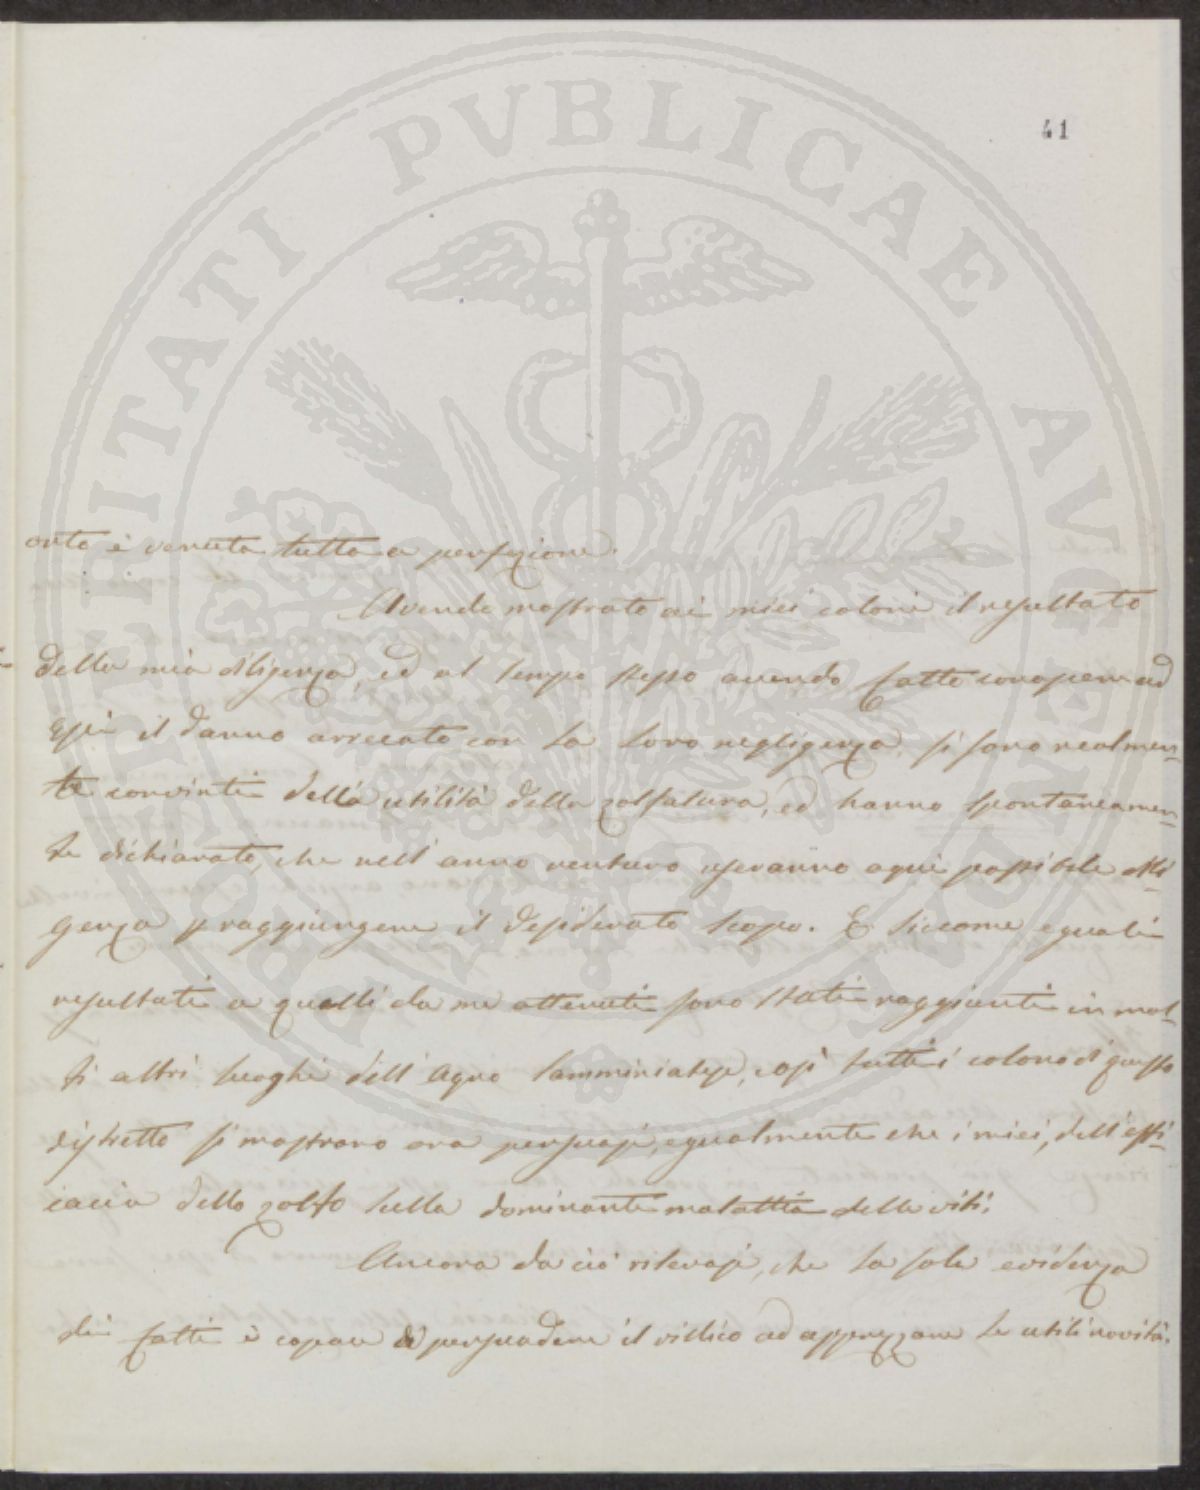 41
PROSPERITATI PVBLICAE AVGENDAE
orto è venuta tutta a perfezione.
Avendo mostrato ai miei coloni il resultato
della mia diligenza, ed al tempo stesso avendo fatto conoscere ad
essi il danno arrecato con la loro negligenza, si sono realmen-
te convinti della utilità della zolfatura, ed hanno spontaneamen-
te dichiarato, che nell'anno venturo useranno ogni possibile dili-
genza p raggiungere il desiderato scopo. E siccome eguali
resultati a quelli da me ottenuti sono stati raggiunti in mol-
ti altri luoghi dell'Agro Samminiatese, così tutti i coloni di questo
distretto si mostrano ora persuasi, egualmente che i miei, dell'effi-
cacia dello zolfo sulla dominante malattia delle viti.
Ancora da ciò rilevasi, che la sola evidenza
dei fatti è capace di persuadere il villico ad apprezzare le utili novità.